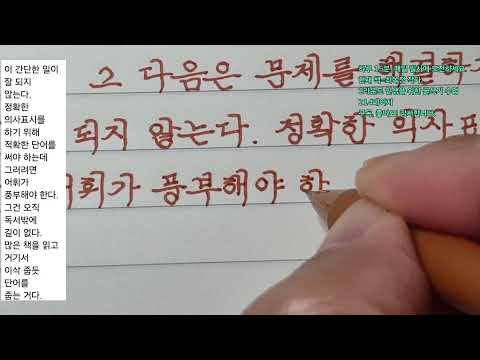 이 간단한 일이
잘 되지
않는다.
정확한
의사표시를
하기 위해
적확한 단어를
써야 하는데
그러려면
어휘가
풍부해야 한다.
그건 오직
독서밖에
길이 없다.
많은 책을 읽고
거기서
이삭 줍듯
단어를
줍는 거다.
그 다음은 문제를 해결
되지 않는다. 정확한 의사표
어휘가 풍부해야 하